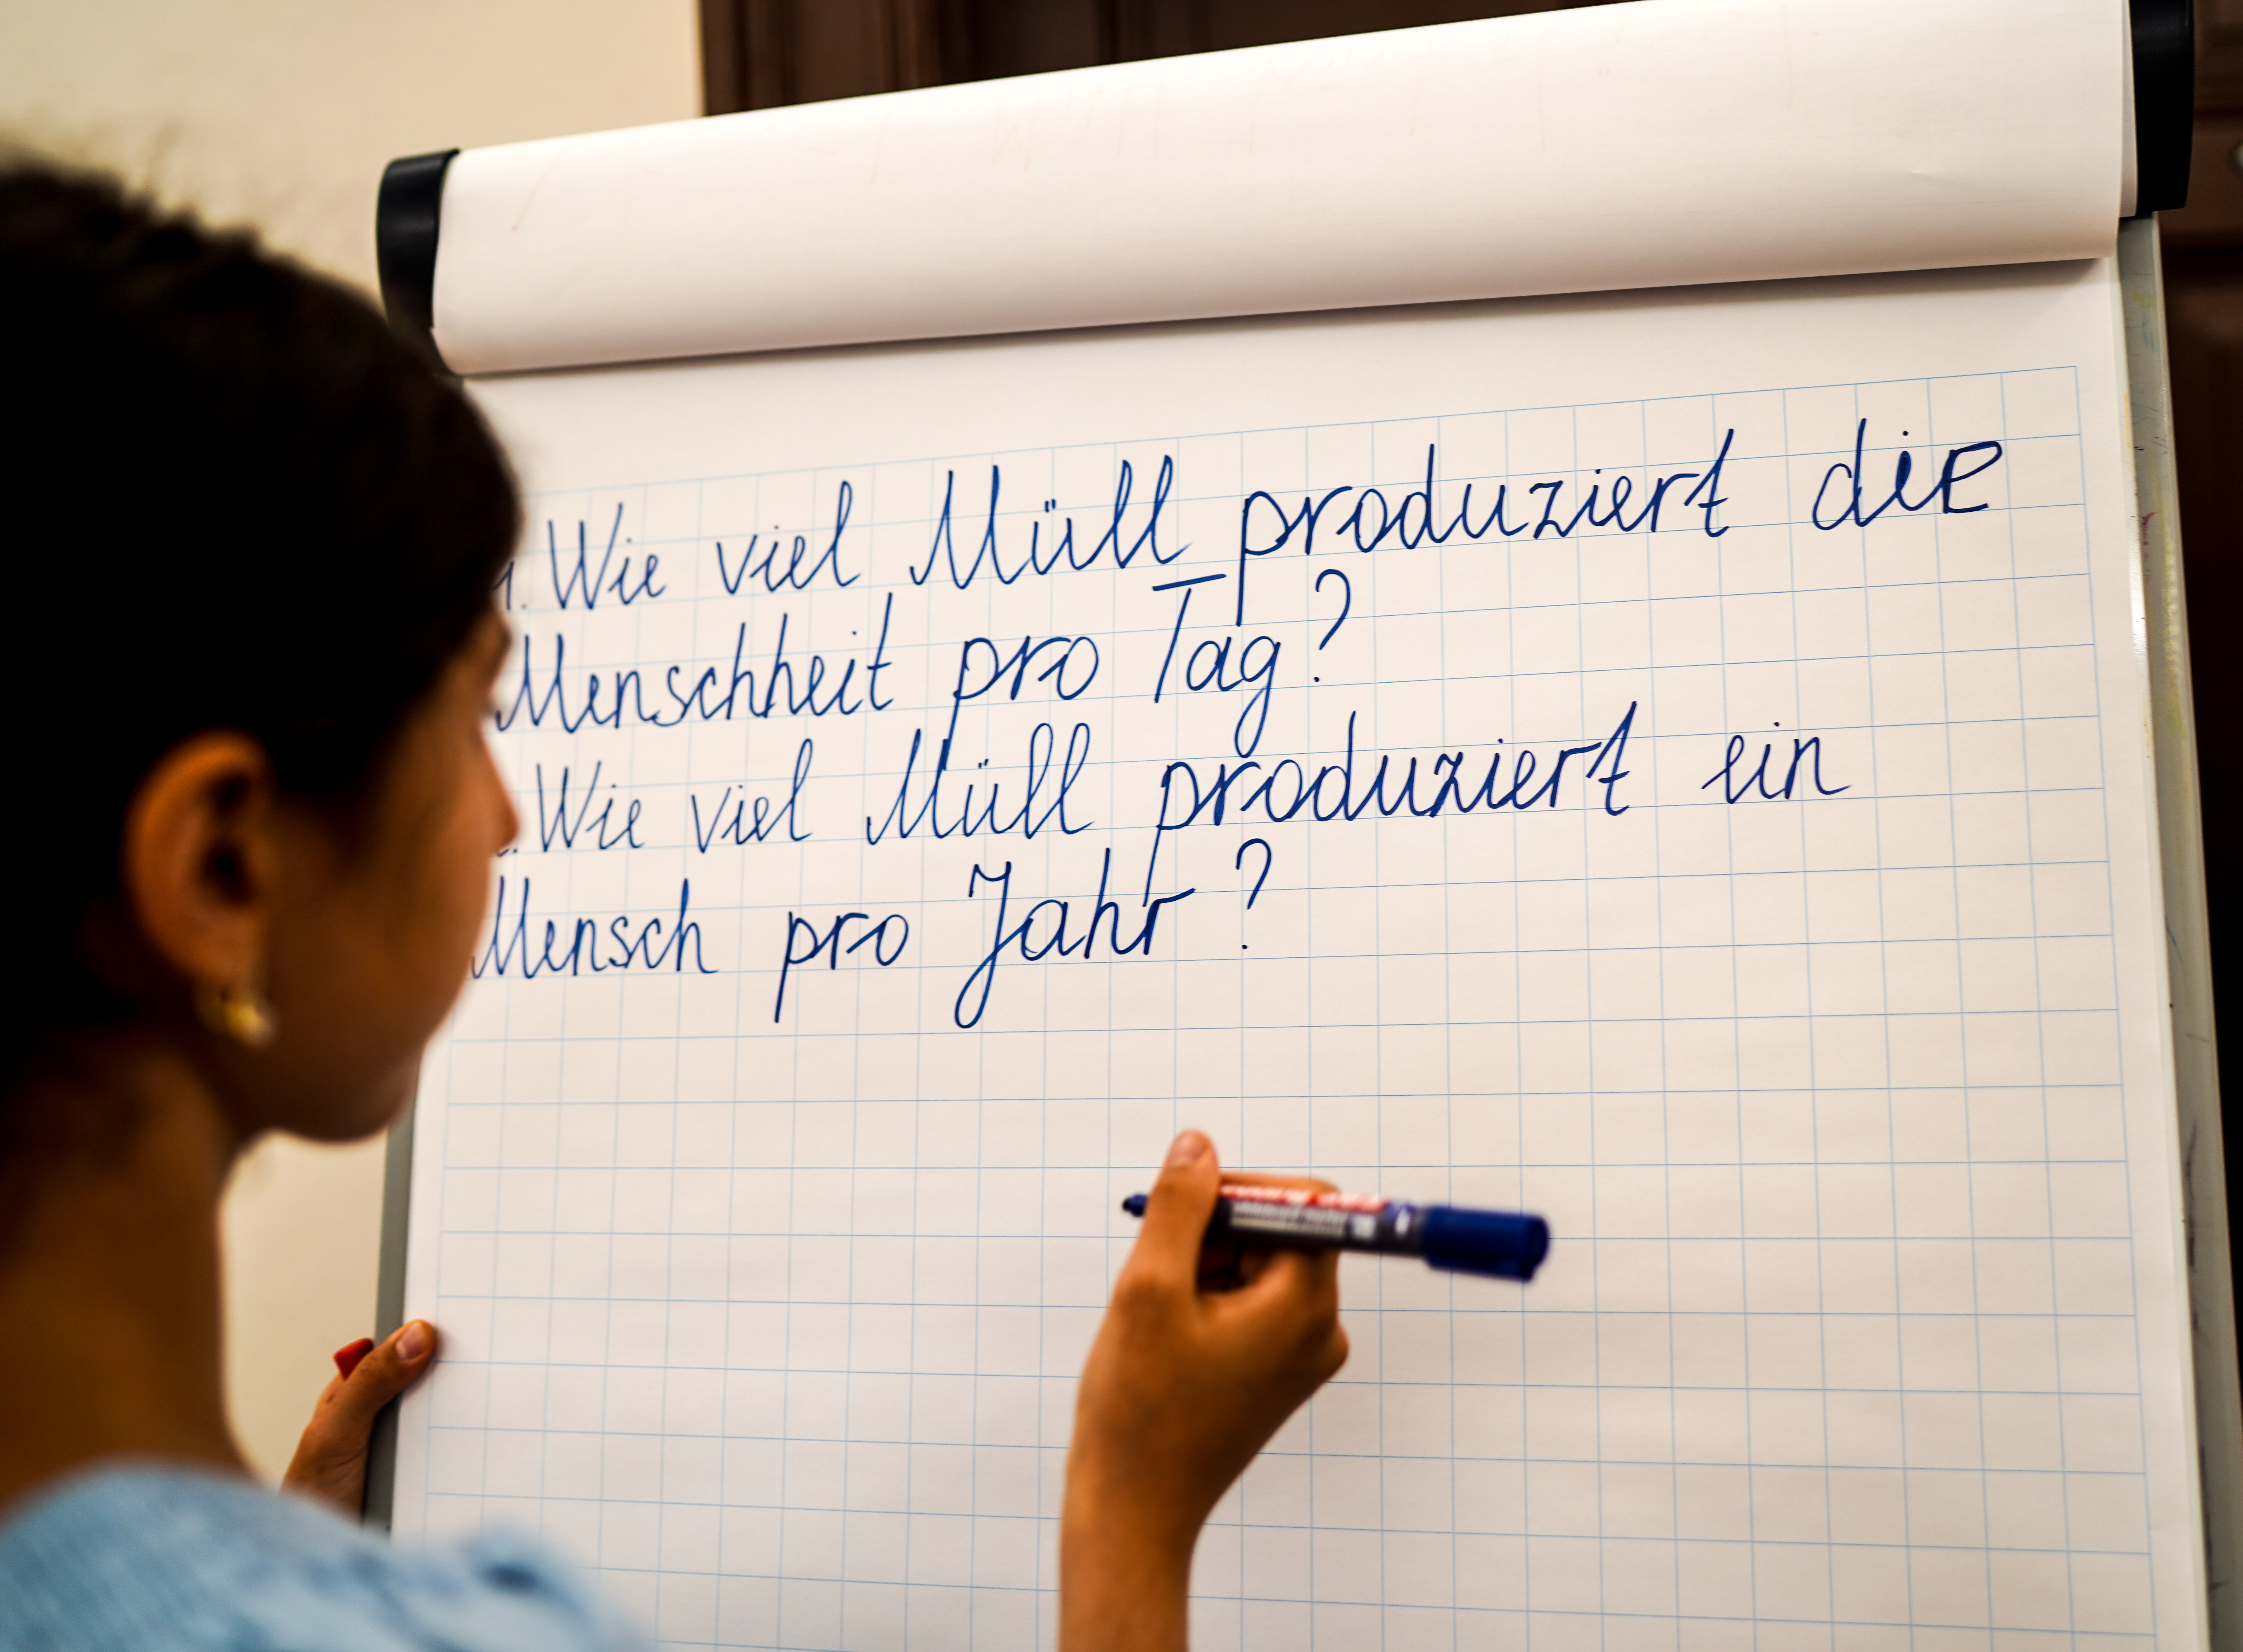 1. Wie viel Müll produziert die
Menschheit pro Tag?
Wie viel Müll produziert ein
Mensch pro Jahr?